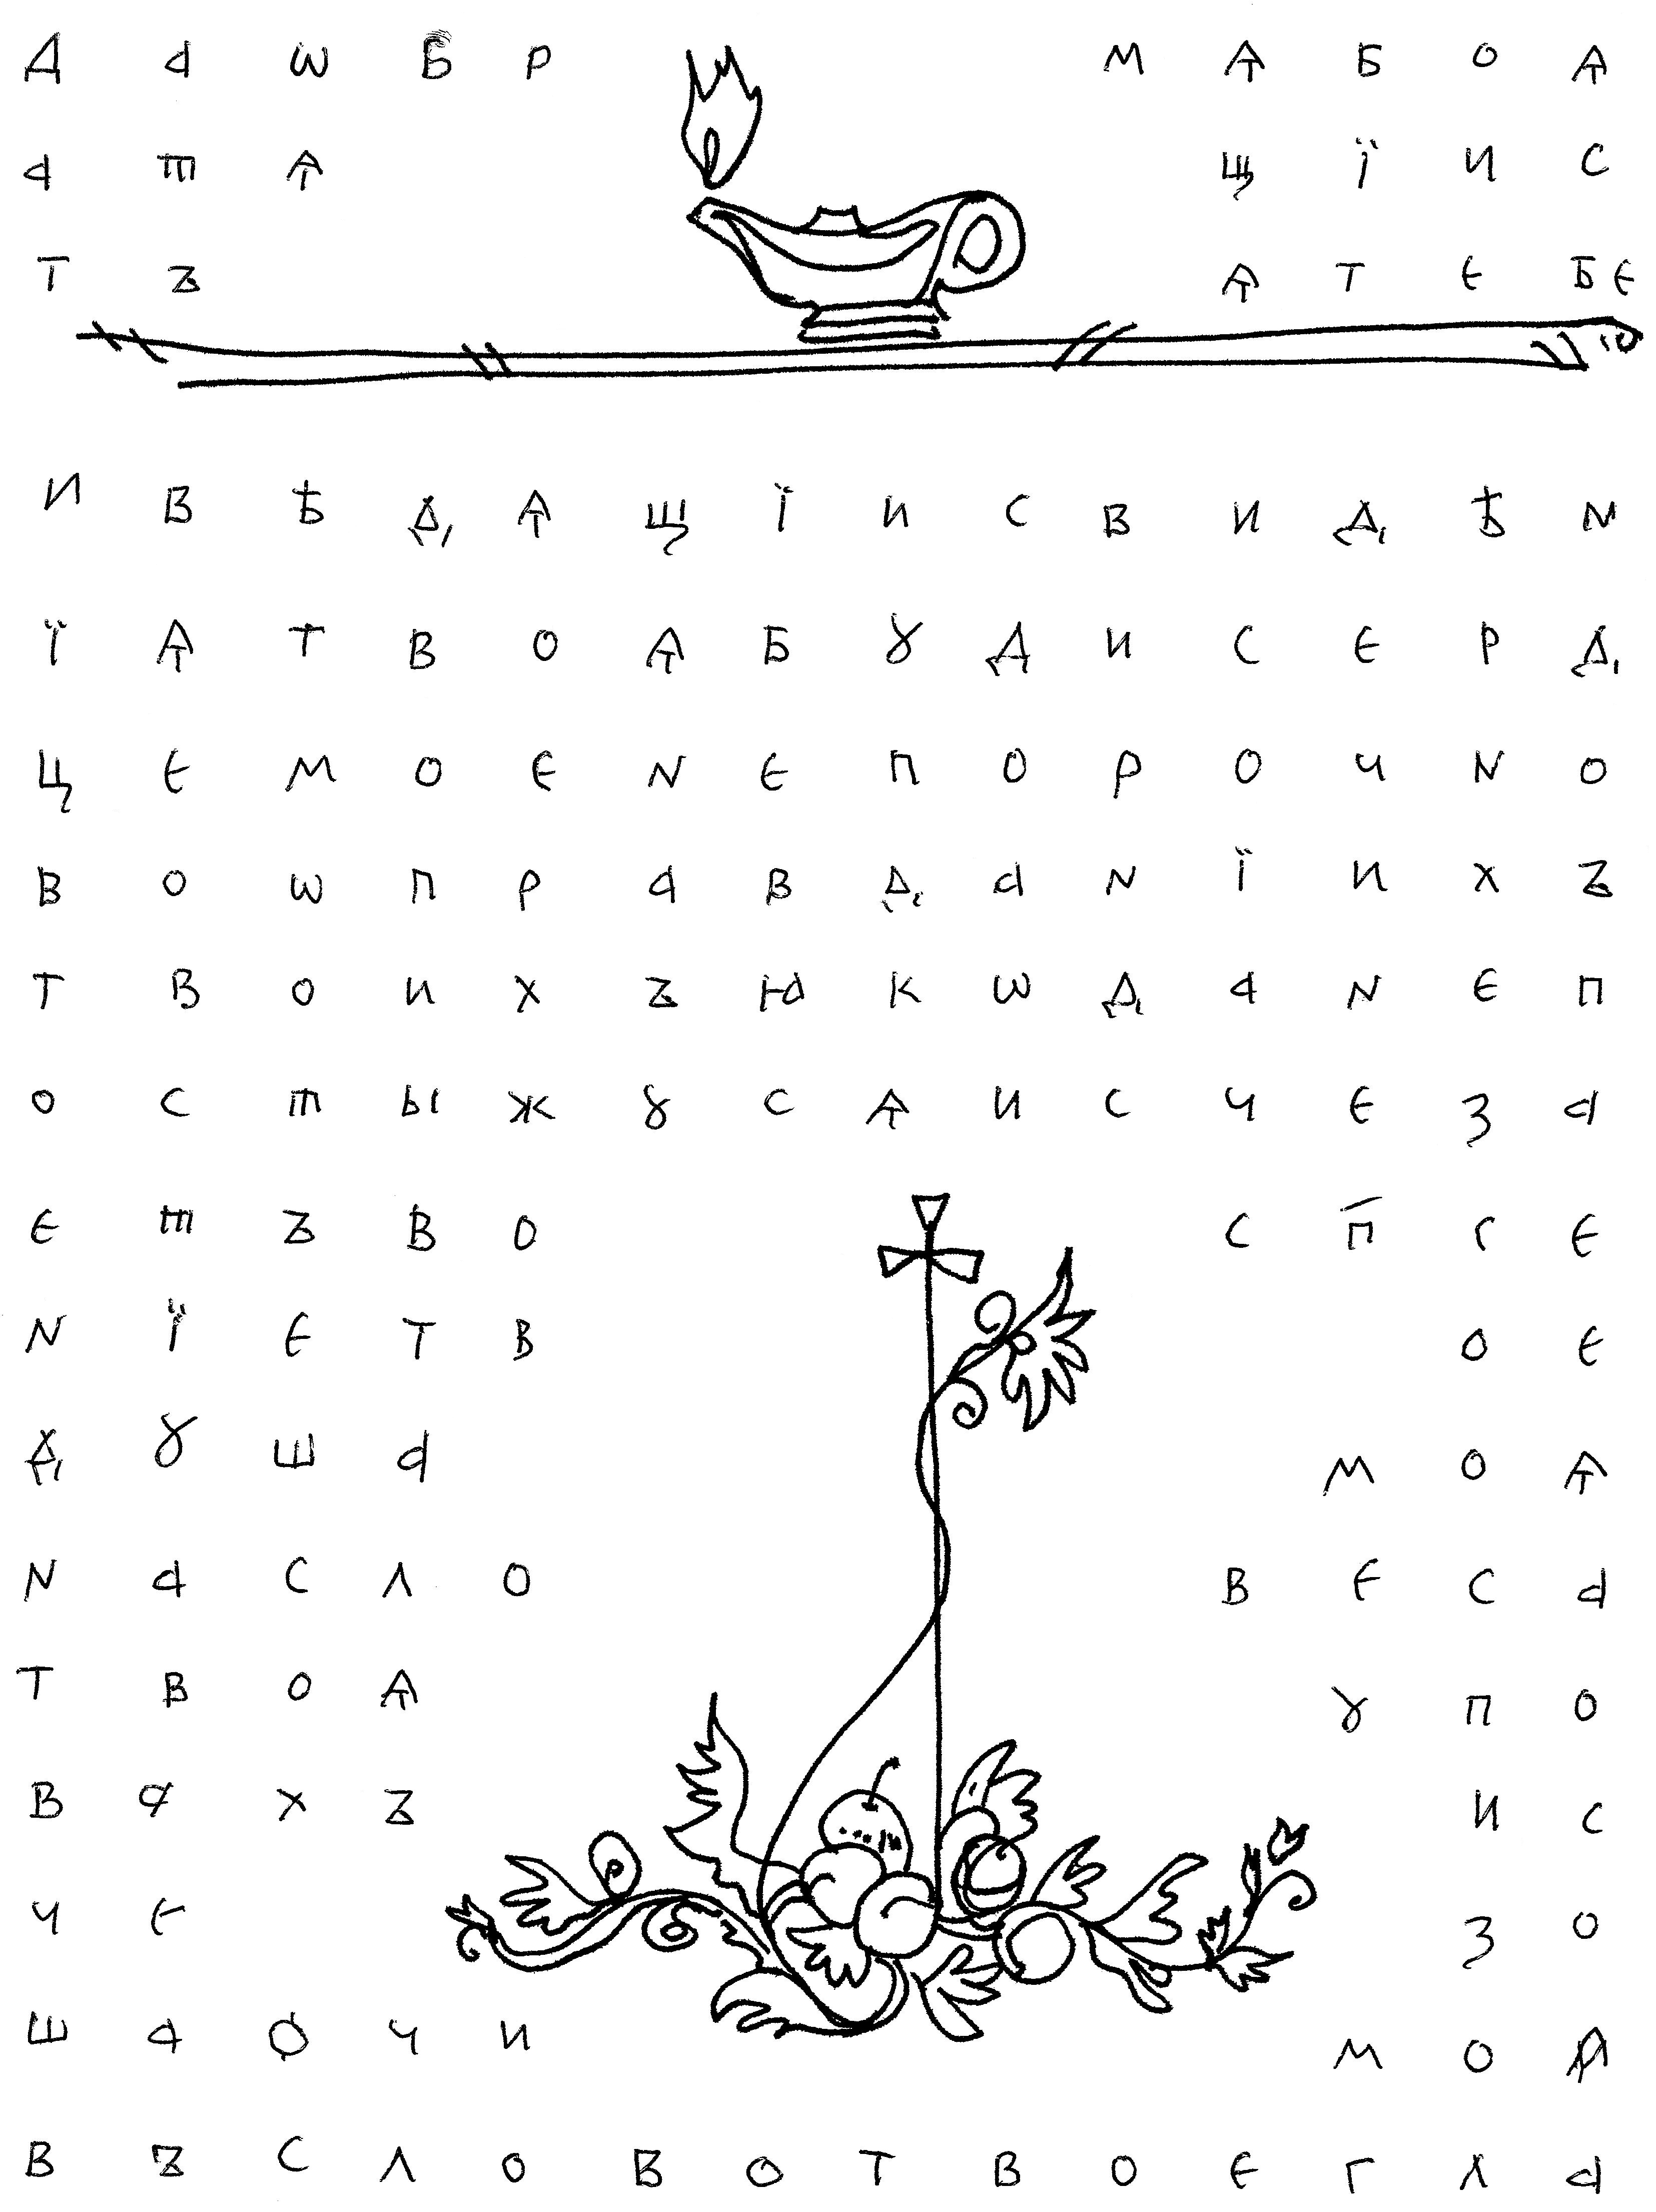 ДАѠБР МѦБОѦ
АТѦ ЩЇИС
ТЪ ѦТЄБЄ
ИВѢДѦЩЇИСВИДѢН
ЇѦТВОѦБꙊДИСЄРД
ЦЄМОЄНЄПОРОЧНО
ВОѠПРАВДАНЇИХЪ
ТВОИХЪꙖКѠДАНЄП
ОСТЫЖꙊСѦИСЧЄЗА
ЄТЪВО СП҃ГЄ
НЇЄТВ ОЄ
ДꙊША МОѦ
НАСЛО ВЄСА
ТВОѦ ꙊПО
ВАХЪ ИС
ЧЄ ЗО
ШАОЧИ МОѦ
ВЪСЛОВОТВОЄГЛА